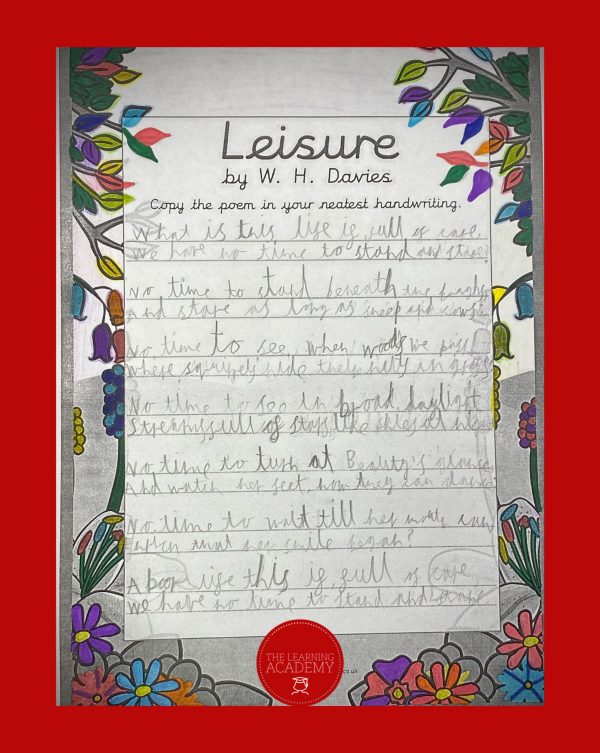 Leisure
by W. H. Davies
Copy the poem in your neatest handwriting.
What is this life if, full of care,
We have no time to stand and stare?
No time to stand beneath the boughs
And stare as long as sheep and cows.
No time to see, when woods we pass
Where squirrels hide their nuts in grass
No time to see in broad daylight
Streams full of stars, like skies at
No time to turn at Beauty's glance
And watch her feet, how they can dance
No time to wait till her mouth can
that her smile began?
A poor life this if, full of care,
We have no time to stand and stare
THE LEARNING
ACADEMY
co.uk